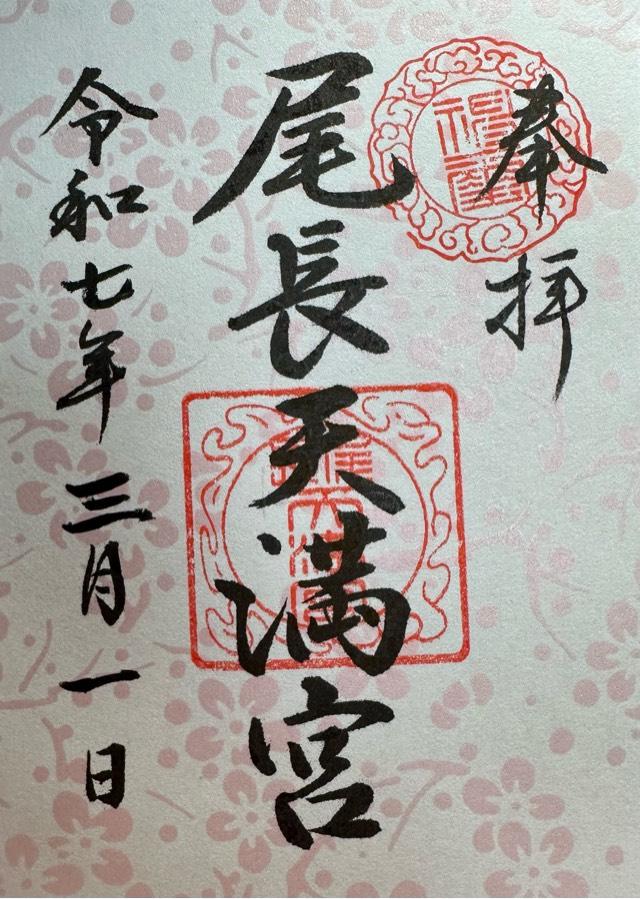 奉拝
尾長天満宮
令和七年三月一日